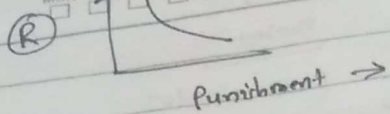 R
Punishment →